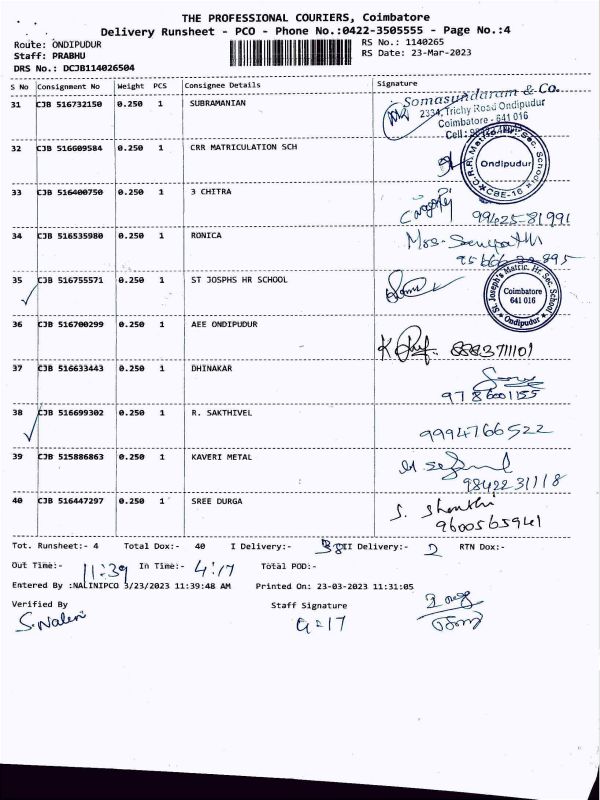 THE PROFESSIONAL COURIERS, Coimbatore
Delivery Runsheet - PCO - Phone No.:0422-3505555 - Page No.:4
Route: ONDIPUDUR RS No.: 1140265
Staff: PRABHU RS Date: 23-Mar-2023
DRS No.: DCJB114026504
S No Consignment No Weight PCS Consignee Details Signature
31 CJB 516732150 0.250 1 SUBRAMANIAN
Somasundaram & Co.
2334, Trichy Road Ondipudur
Coimbatore - 641 016
Cell:
32 CJB 516609584 0.250 1 CRR MATRICULATION SCH
C.R.R. Matric Hr. Sec. School
Ondipudur
CBE-16
33 CJB 516400750 0.250 1 3 CHITRA
99425-81991
34 CJB 516535980 0.250 1 RONICA
35 CJB 516755571 0.250 1 ST JOSPHS HR SCHOOL
St. Joseph's Matric. Hr. Sec. School
Coimbatore
641 016
Ondipudur
36 CJB 516700299 0.250 1 AEE ONDIPUDUR
8883711101
37 CJB 516633443 0.250 1 DHINAKAR
9786001155
38 CJB 516699302 0.250 1 R. SAKTHIVEL
9994766522
39 CJB 515886863 0.250 1 KAVERI METAL
9842231118
40 CJB 516447297 0.250 1 SREE DURGA
S. Shanthi
9600565941
Tot. Runsheet:- 4 Total Dox:- 40 I Delivery:- 38 II Delivery:- 2 RTN Dox:-
Out Time:- 11:39 In Time:- 4:17 Total POD:-
Entered By :NALINIPCO 3/23/2023 11:39:48 AM Printed On: 23-03-2023 11:31:05
Verified By Staff Signature
S.Nalini